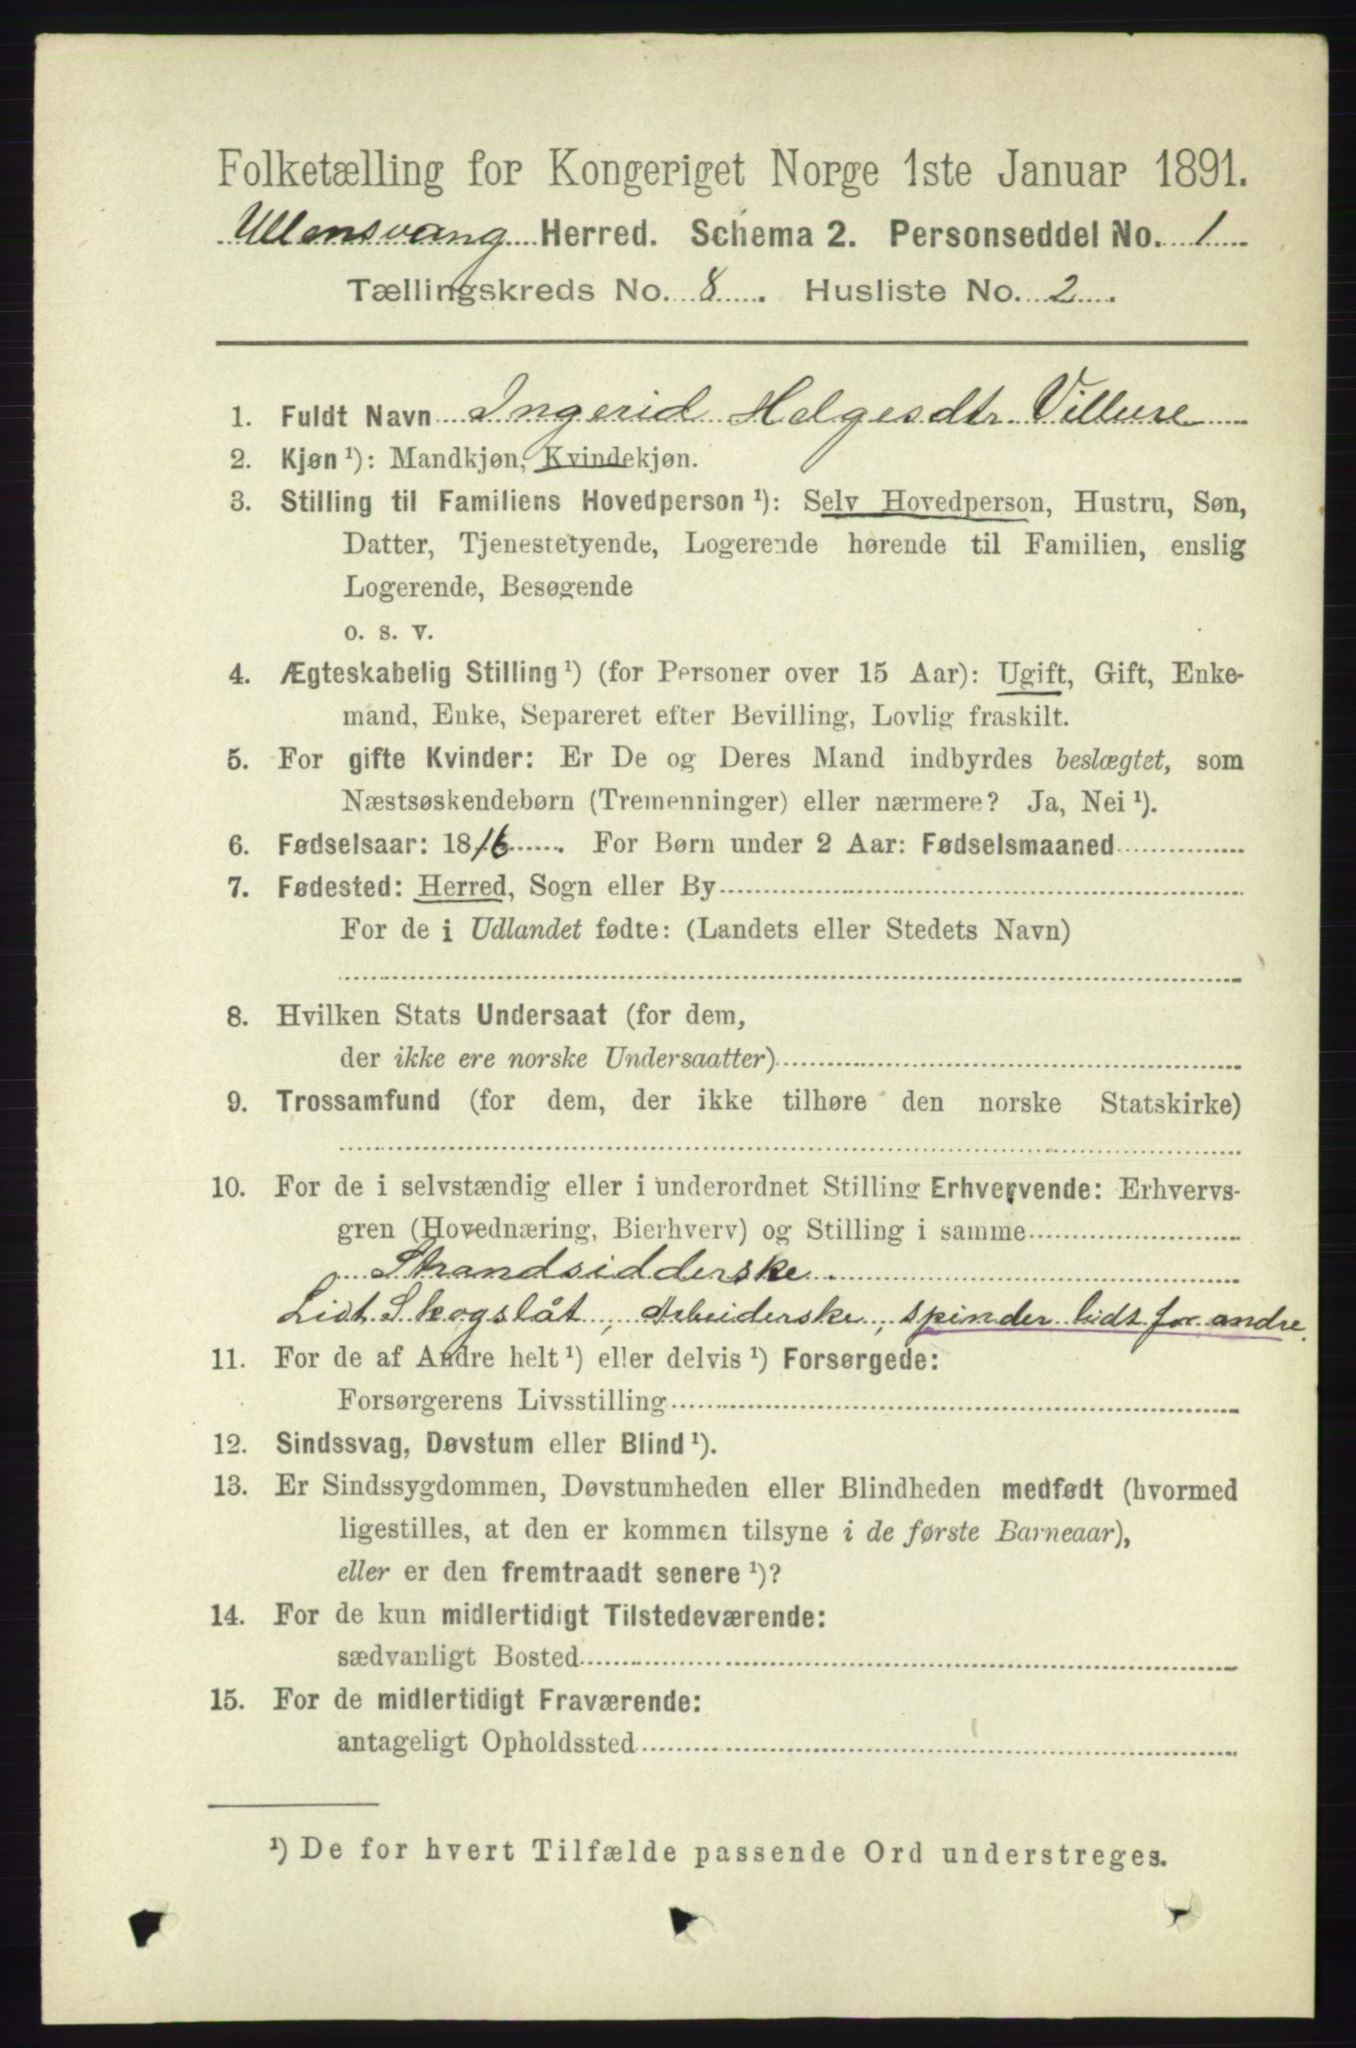 Folketælling for Kongeriget Norge 1ste Januar 1891.
Ullensvang Herred. Schema 2. Personseddel No. 1
Tællingskreds No. 8. Husliste No. 2.
1. Fuldt Navn Ingerid Helgesdtr. Villure
2. Kjøn ¹): Mandkjøn, Kvindekjøn.
3. Stilling til Familiens Hovedperson ¹): Selv Hovedperson, Hustru, Søn,
Datter, Tjenestetyende, Logerende hørende til Familien, enslig
Logerende, Besøgende
o. s. v.
4. Ægteskabelig Stilling ¹) (for Personer over 15 Aar): Ugift, Gift, Enke-
mand, Enke, Separeret efter Bevilling, Lovlig fraskilt.
5. For gifte Kvinder: Er De og Deres Mand indbyrdes beslægtet, som
Næstsøskendebørn (Tremenninger) eller nærmere? Ja, Nei ¹).
6. Fødselsaar: 1816. For Børn under 2 Aar: Fødselsmaaned
7. Fødested: Herred, Sogn eller By
For de i Udlandet fødte: (Landets eller Stedets Navn)
8. Hvilken Stats Undersaat (for dem,
der ikke ere norske Undersaatter)
9. Trossamfund (for dem, der ikke tilhøre den norske Statskirke)
10. For de i selvstændig eller i underordnet Stilling Erhvervende: Erhvervs-
gren (Hovednæring, Bierhverv) og Stilling i samme
Strandsidderske.
Lidt Skogslåt, Arbeiderske, spinder lidt for andre.
11. For de af Andre helt ¹) eller delvis ¹) Forsørgede:
Forsørgerens Livsstilling
12. Sindssvag, Døvstum eller Blind ¹).
13. Er Sindssygdommen, Døvstumheden eller Blindheden medfødt (hvormed
ligestilles, at den er kommen tilsyne i de første Barneaar),
eller er den fremtraadt senere ¹)?
14. For de kun midlertidigt Tilstedeværende:
sædvanligt Bosted
15. For de midlertidigt Fraværende:
antageligt Opholdssted
¹) De for hvert Tilfælde passende Ord understreges.